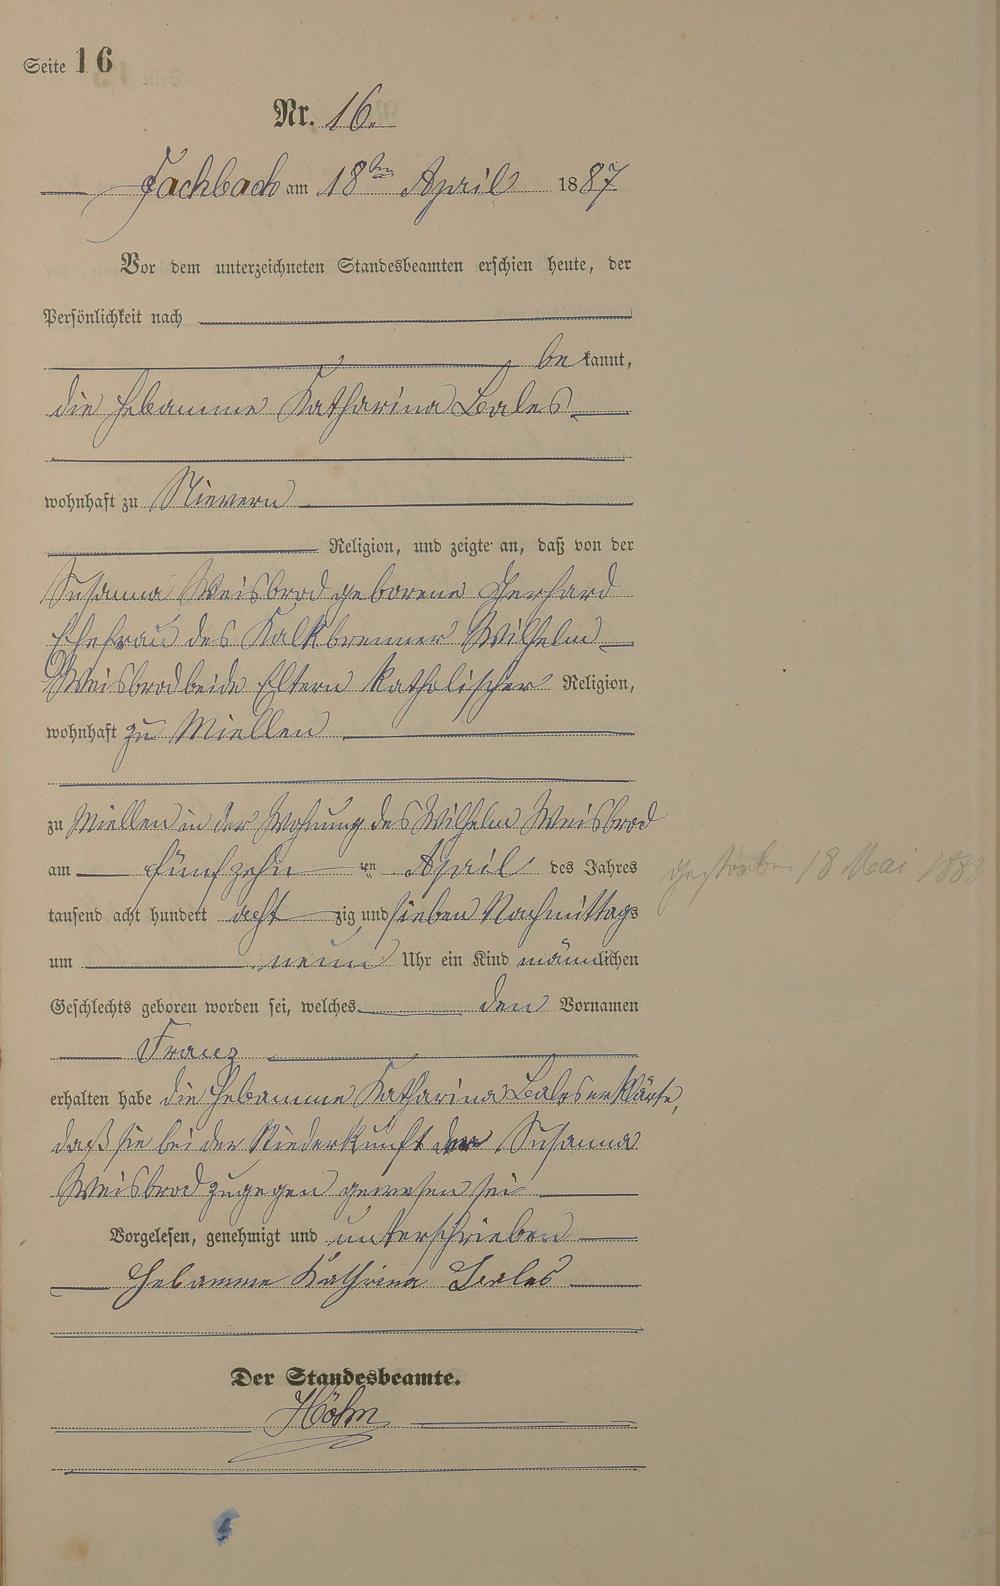 Seite 16
Nr. 16.
Fachbach am 18ten April 1887
Vor dem unterzeichneten Standesbeamten erschien heute, der
Persönlichkeit nach
bekannt,
die Hebamme Katharina Bales
wohnhaft zu Nievern
Religion, und zeigte an, daß von der
Susanna Weisbrod geborene Gerhard
Ehefrau des Kalkbrenner Wilhelm
Weisbrod beide Eltern katholischer Religion,
wohnhaft zu Miellen
zu Miellen in der Wohnung des Wilhelm Weisbrod
am fünfzehn ten April des Jahres
gestorben 18 Mai 1888
tausend acht hundert acht zig und sieben Nachmittags
um neun Uhr ein Kind männlichen
Geschlechts geboren worden sei, welches den Vornamen
Franz
erhalten habe die Hebamme Katharina Bales erklärte,
daß sie bei der Niederkunft der Susanna
Weisbrod zugegen gewesen sei
Vorgelesen, genehmigt und unterschrieben
Hebamme Kathrina Bales
Der Standesbeamte.
Höhn